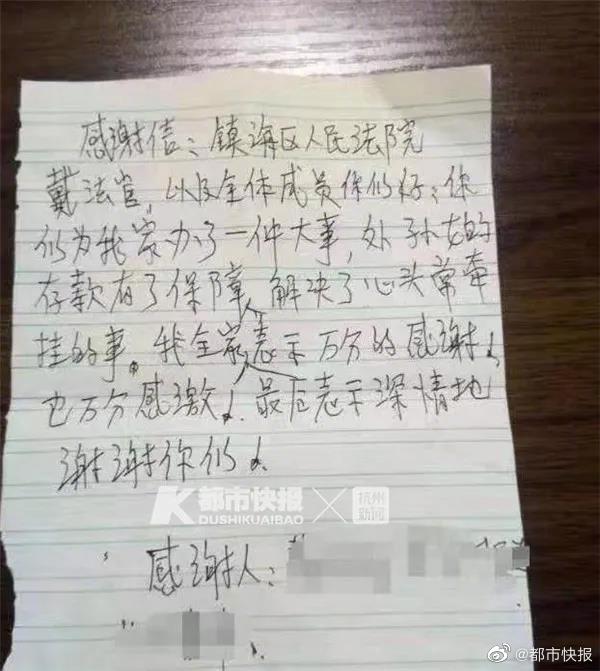 感谢信：镇海区人民法院
戴法官，以及全体成员你们好：你
们为我家办了一件大事，外孙女的
存款有了保障，解决了心头常牵
挂的事。我全家人表示万分的感谢，
也万分感激，最后表示深情地
谢谢你们，
都市快报
DUSHIKUAIBAO
杭州
新闻
感谢人：
@都市快报